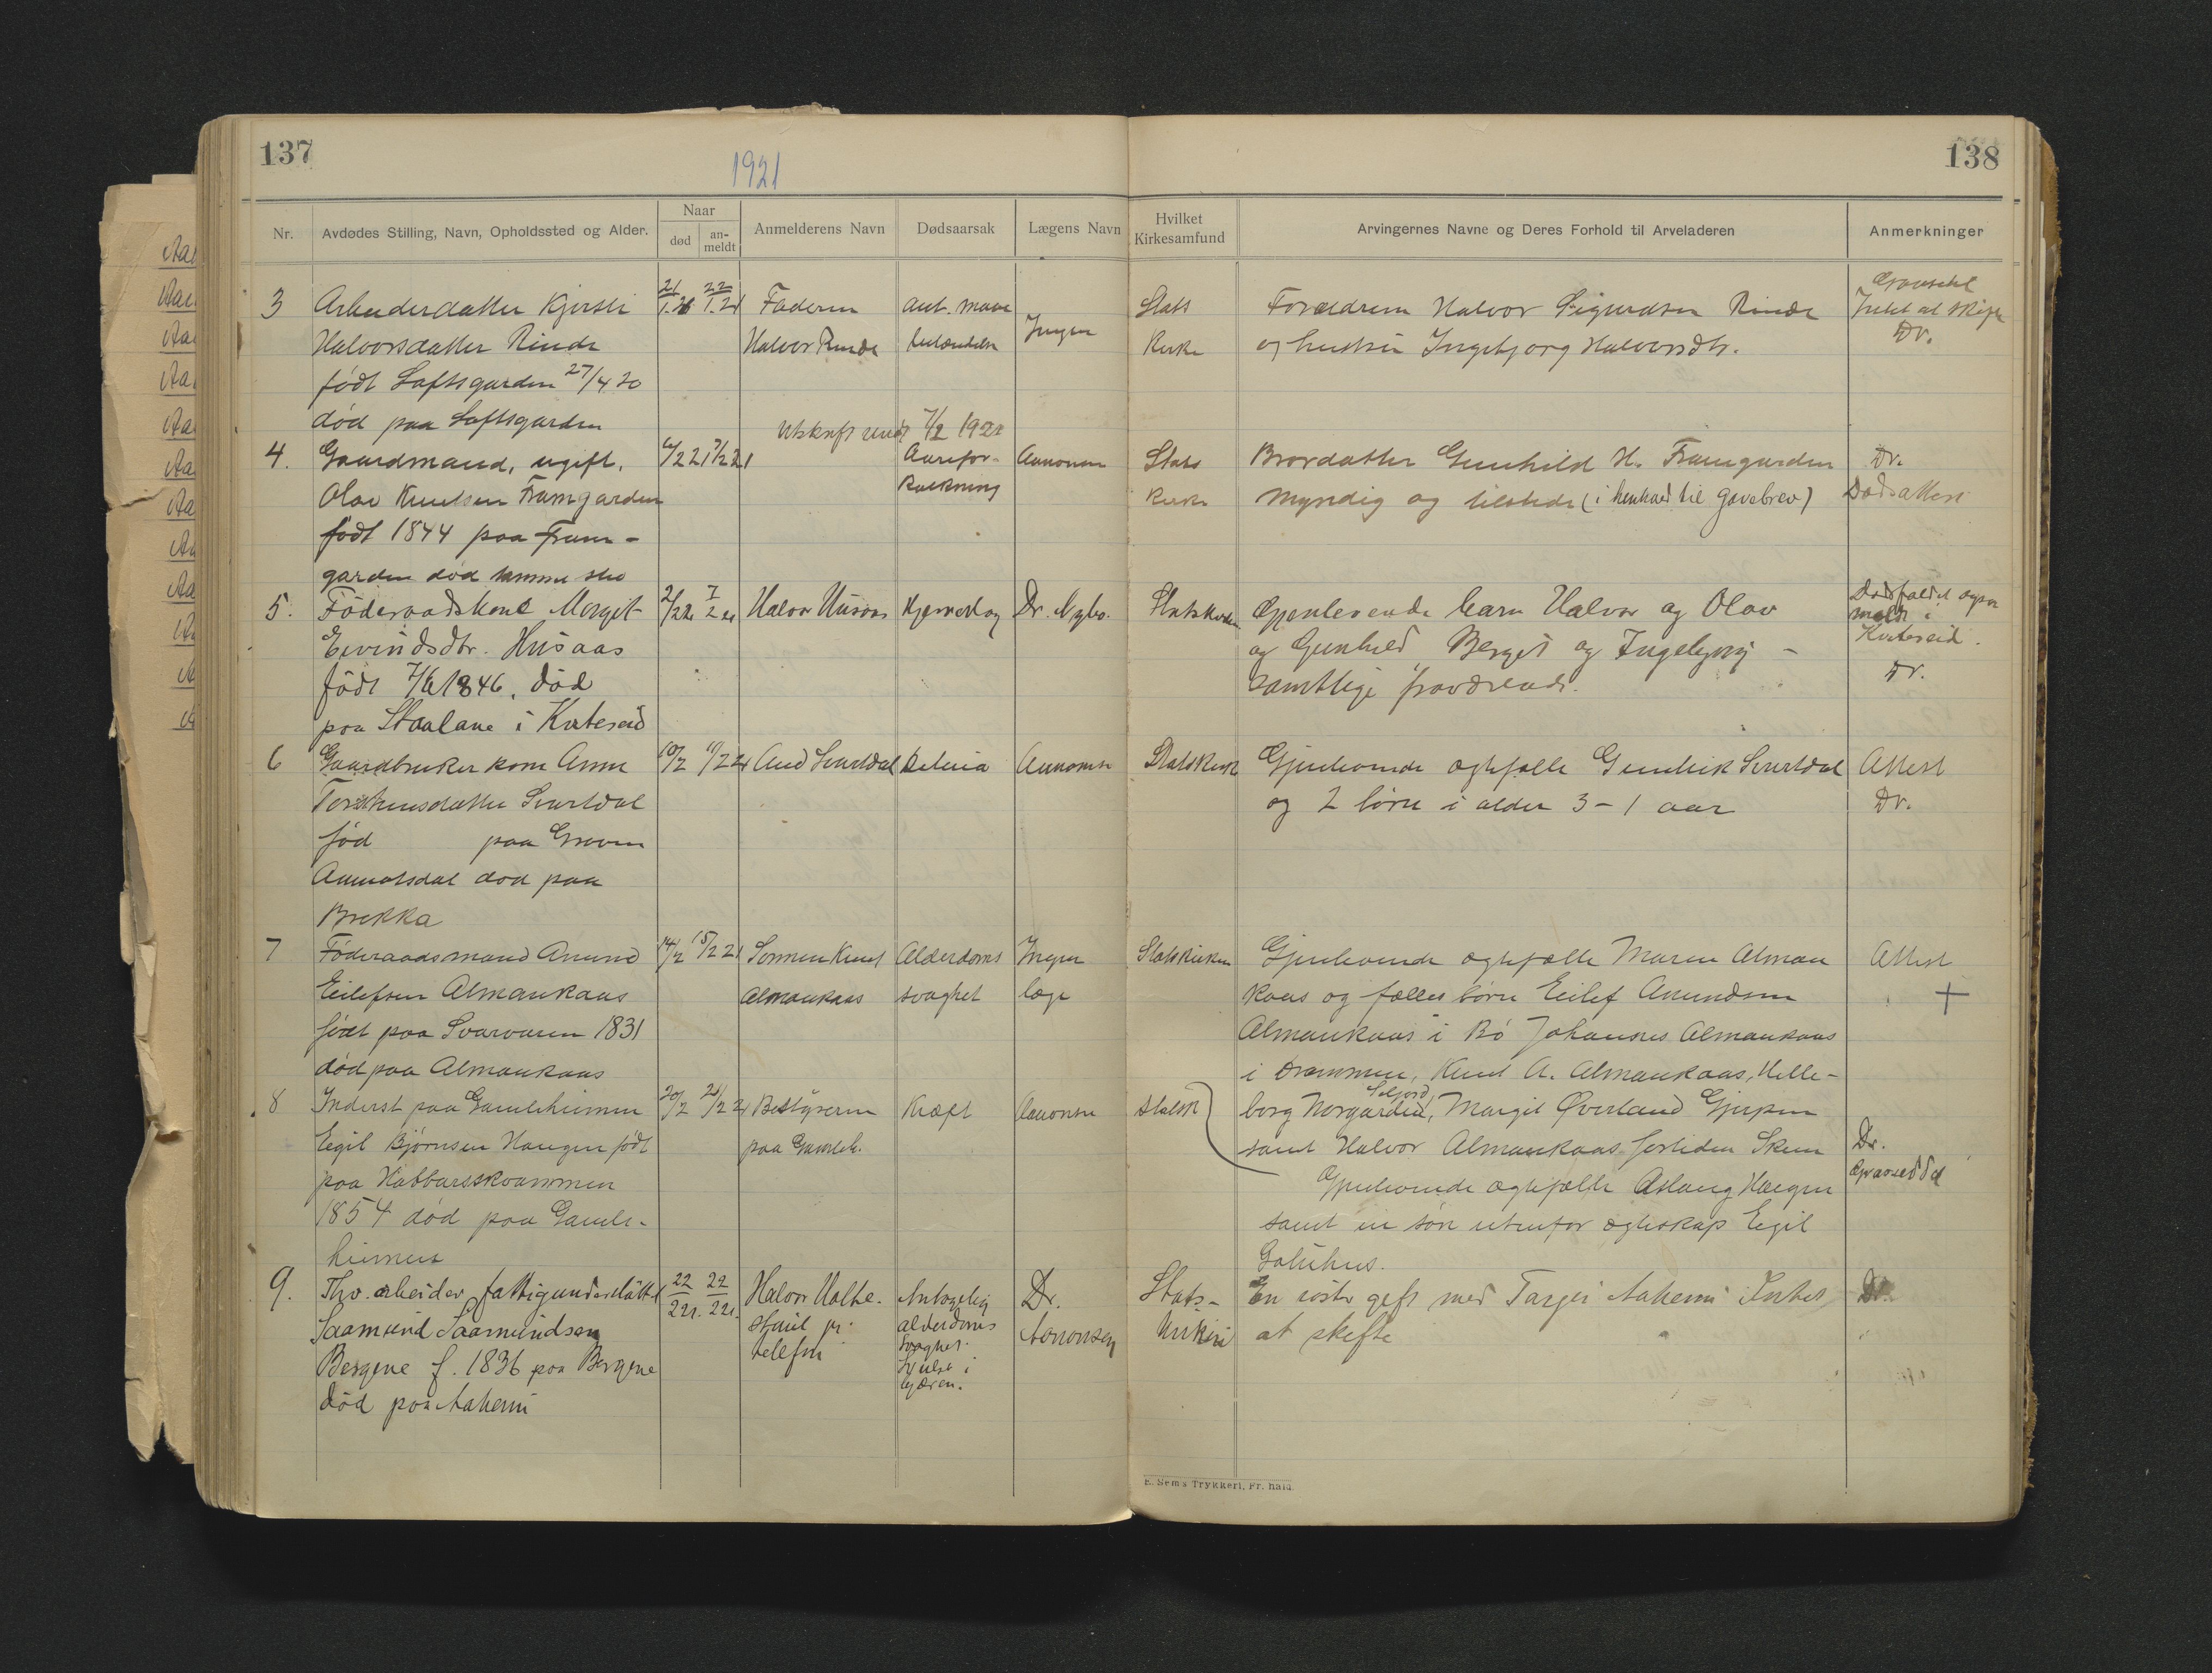 137
1921
138
Nr.
Avdødes Stilling, Navn, Opholdssted og Alder.
Naar
død
an-
meldt
Anmelderens Navn
Dødsaarsak
Lægens Navn
Hvilket
Kirkesamfund
Arvingernes Navne og Deres Forhold til Arveladeren
Anmerkninger
3 Arbeiderdatter Kjersti 21/1. 22/1.21 Faderen ant. mave Stats Forældrene Halvor Sigurdsen Rinde Intet at skifte
Halvorsdatter Rinde Halvor Rinde betændelse Ingen Kirke og hustru Ingebjørg Halvorsdtr. Dr.
født Loftsgarden 27/4 20
død paa Loftsgarden
Utskrift sendt 7/2 1921
4. Gaardmand, ugift, 7/2 21 Aarefor- Aanonsen Stats Brordatter Gunhild H. Framgarden Dr.
Olav Knutsen Framgarden kalkning Kirke myndig og tilstede (i henhold til gavebrev) Dødsattest
født 1844 paa Fram-
garden død samme sted
5. Føderaadskone Margit 2/2 21 7/2 21 Halvor Husaas Hjerneslag Dr. Nybø. Statskirken Gjenlevende barn Halvor og Olav Dødsfaldet ogsaa
Eivindsdtr. Husaas og Gunhild Berget og Ingebjørg - meldt i
født 7/6 1846, død samtlige fraværende. Kviteseid.
paa Staalane i Kviteseid Dr.
6 Gaardbruker kone Anne 10/2 11/2 21 Aud Svartdal Aanonsen Statskirk Gjenlevende ægtefælle Gunleik Svartdal Attest
Torsteinsdatter Svartdal og 2 børn i alder 3-1 aar Dr.
fød paa Groven
Aamotsdal død paa
Brekka
7 Føderaadsmand Anund 14/2 15/2 21 Sønnen Knut Alderdoms Ingen Statskirken Gjenlevende ægtefælle Maren Alman Attest
Eilefsen Almankaas Almankaas svaghet læge kaas og fælles børn Eilef Anundsen +
født paa Svarvaren 1831 Almankaas i Bø Johannes Almankaas
død paa Almankaas i Drammen, Knut A. Almankaas, Helle-
8 Inderst paa Gamleheimen 20/2 21/2 21 Bestyreren Kræft Aanonsen Statsk borg Norgarden, Seljord Margit Øverland Gjerpen
Eegil Bjørnsen Haugen født paa Gamleh. samt Halvor Almankaas fortiden Skien Dr.
paa Habbarsskvammen Gjenlevende ægtefælle Aslaug Haugen
1854 død paa Gamle- samt en søn utenfor ægteskap Eegil
heimen
9. Thv. arbeider, fattigunderstøttet 22/2 21. 22/2 21. Halvor Halke- Antagelig Dr. Stats- En søster gift med Targei Aaheim Intet Dr.
Saamund Saamundsen staul pr. alderdoms Aanonsen kirken at skifte
Bergene f. 1836 paa Bergene telefon svaghet.
død paa Aaheim
E. Sem's Trykkeri, Fr. hald.